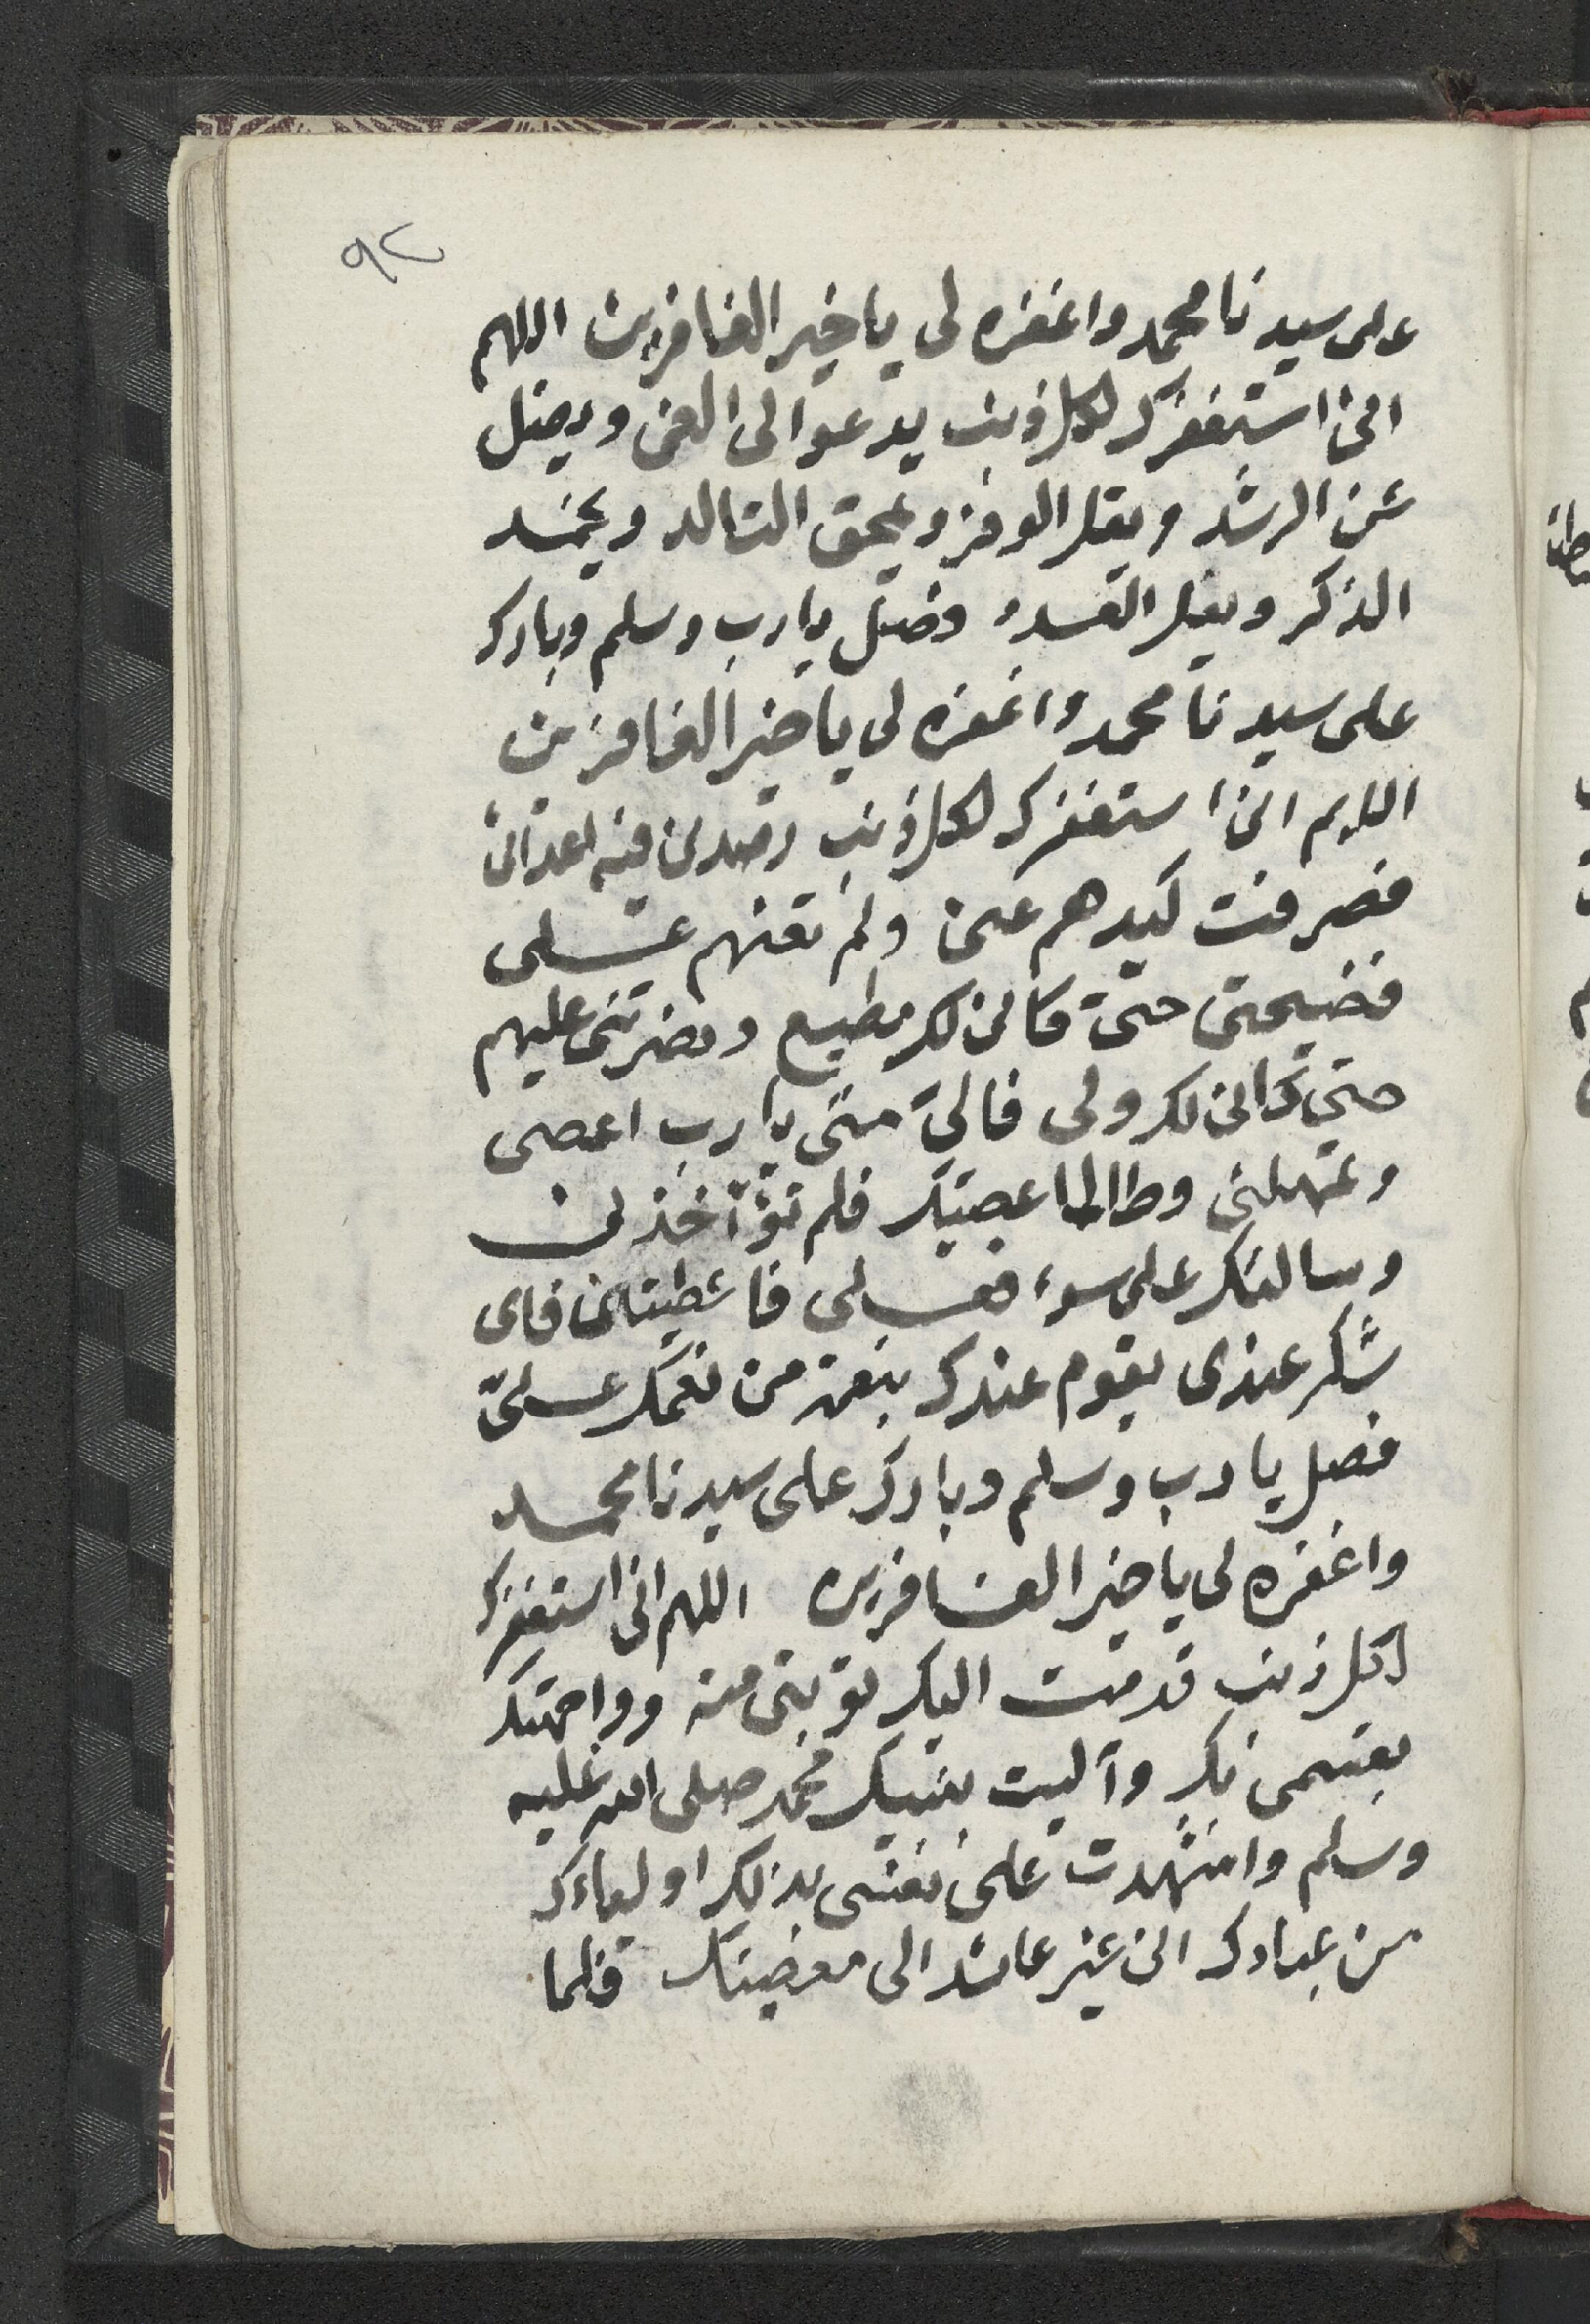 ٩٢
على سيدنا محمد واغفره لى ياخير الغافرين اللهم
انى استغفرك لكل ذنب يدعوا لى الغى ويضل
عن الرشد ويقل الوفر ويمحق التالد ويخمد
الذكر ويقل العدد وصل يارب وسلم وبارك
على سيدنا محمد واغفره لى ياخير الغافرين
اللهم انى استغفرك لكل ذنب رصدنى فيه اعدائى
فصرفت كيدهم عنى ولم تعنهم عـلى
فضيحتى حتى كانى لك مطيع ونصرتنى عليهم
حتى كانى لك ولى فالىّ متى يارب اعصى
وتمهلنى وطالما عصيتك فلم تؤآخذنى
وسالتك على سوء فعـلى فاعطيتنى فاى
شكر عندى يقوم عندك بنعمة من نعمك عـلىّ
فصل يارب وسلم وبارك على سيدنا محمد
واغفره لى ياخير الغافرين اللهم انى استغفرك
لكل ذنب قدمت اليك توبتى منه وواجهتك
بقسمى بك وآليت بنبيك محمد صلى الله عليه
وسلم واشهدت على نفسى بذلك اولياءك
من عبادك انى غير عائد الى معصيتك فلما